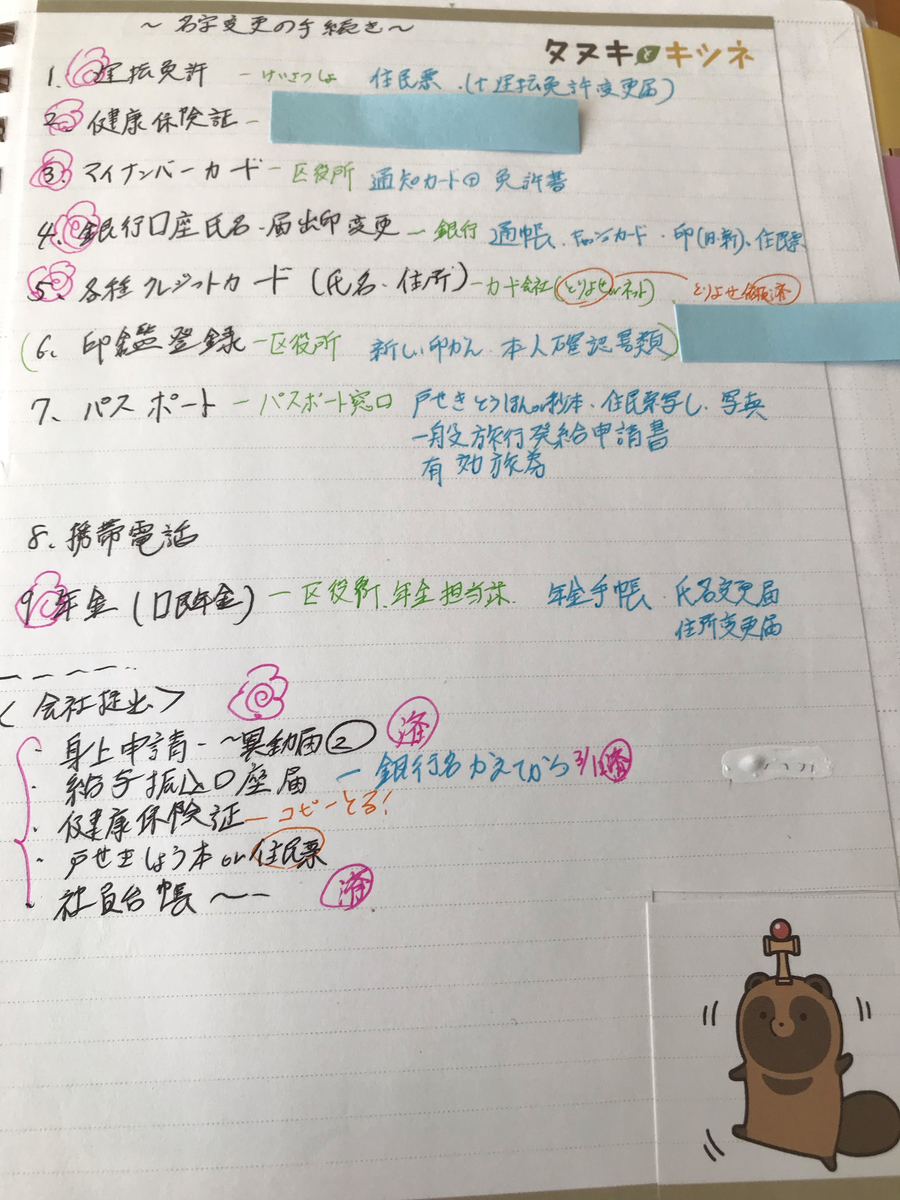 ～名字変更の手続き～
タヌキとキツネ
1. 運転免許 ー けいさつしょ 住民票 (+運転免許変更届)
2. 健康保険証 ー
3. マイナンバーカード ー 区役所 通知カード 免許書
4. 銀行口座氏名・届出印変更 ー 銀行 通帳、キャッシュカード・印(旧・新)、住民票
5. 各種クレジットカード (氏名・住所) ー カード会社 (とりよせorネット) とりよせ 済
(6. 印鑑登録 ー 区役所 新しい印かん 本人確認書類)
7. パスポート ー パスポート窓口 戸せきとうほんor抄本・住民票写し・写真
一般旅行発給申請書
有効旅券
8. 携帯電話
9. 年金 (国民年金) ー 区役所、年金担当課 年金手帳 氏名変更届
住所変更届
<会社提出>
・身上申請 ー ～異動届② 済
・給与振込口座届 ー 銀行名かえてから 済
・健康保険証 ー コピーとる!
・戸せきしょう本 or 住民票
・社員台帳 ～ー 済